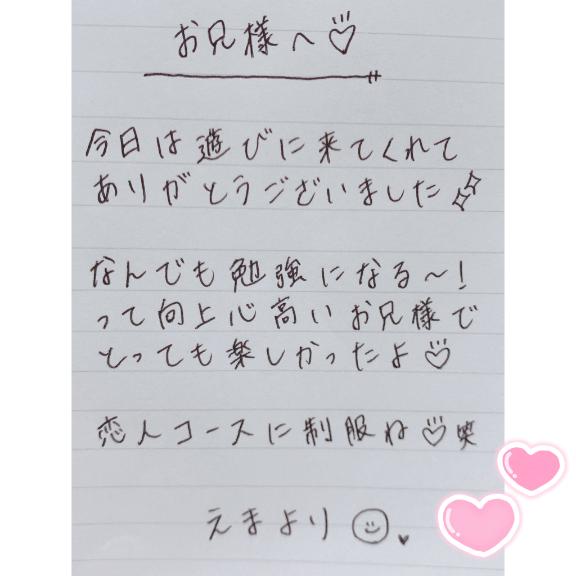 お兄様へ♡
今日は遊びに来てくれて
ありがとうございました✨
なんでも勉強になる〜!
って向上心高いお兄様で
とっても楽しかったよ♡
恋人コースに制服ね♡笑
えまより☺♥